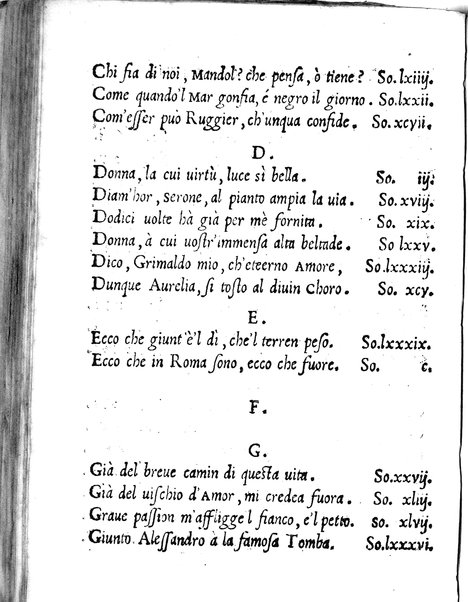 Chi fia di noi, Mandol? che pensa, ò tiene? So.lxiiij.
Come quando'l Mar gonfia, é negro il giorno. So.lxxii.
Com'esser può Ruggier, ch'unqua confide. So.xcvii.
D.
Donna, la cui uirtù, luce sì bella. So. iij.
Diam'hor, serone, al pianto ampia la uia. So.xvij.
Dodici uolte hà già per mè fornita. So. xix.
Donna, à cui uostr'immensa alta beltade. So lxxv.
Dico, Grimaldo mio, ch'eterno Amore, So.lxxxiij.
Dunque Aurelia, si tosto al diuin Choro. So. xcv.
E.
Ecco che giunt'è'l dì, che'l terren peso. So.lxxxix.
Ecco che in Roma sono, ecco che fuore. So. c.
F.
G.
Già del breue camin di questa uita. So.xxvij.
Già del uischio d'Amor, mi credea fuora. So. xliij.
Graue passion m'affligge l fianco, e'l petto. so. xlvij.
Giunto Alessandro à la famosa Tomba. So.lxxxvi.